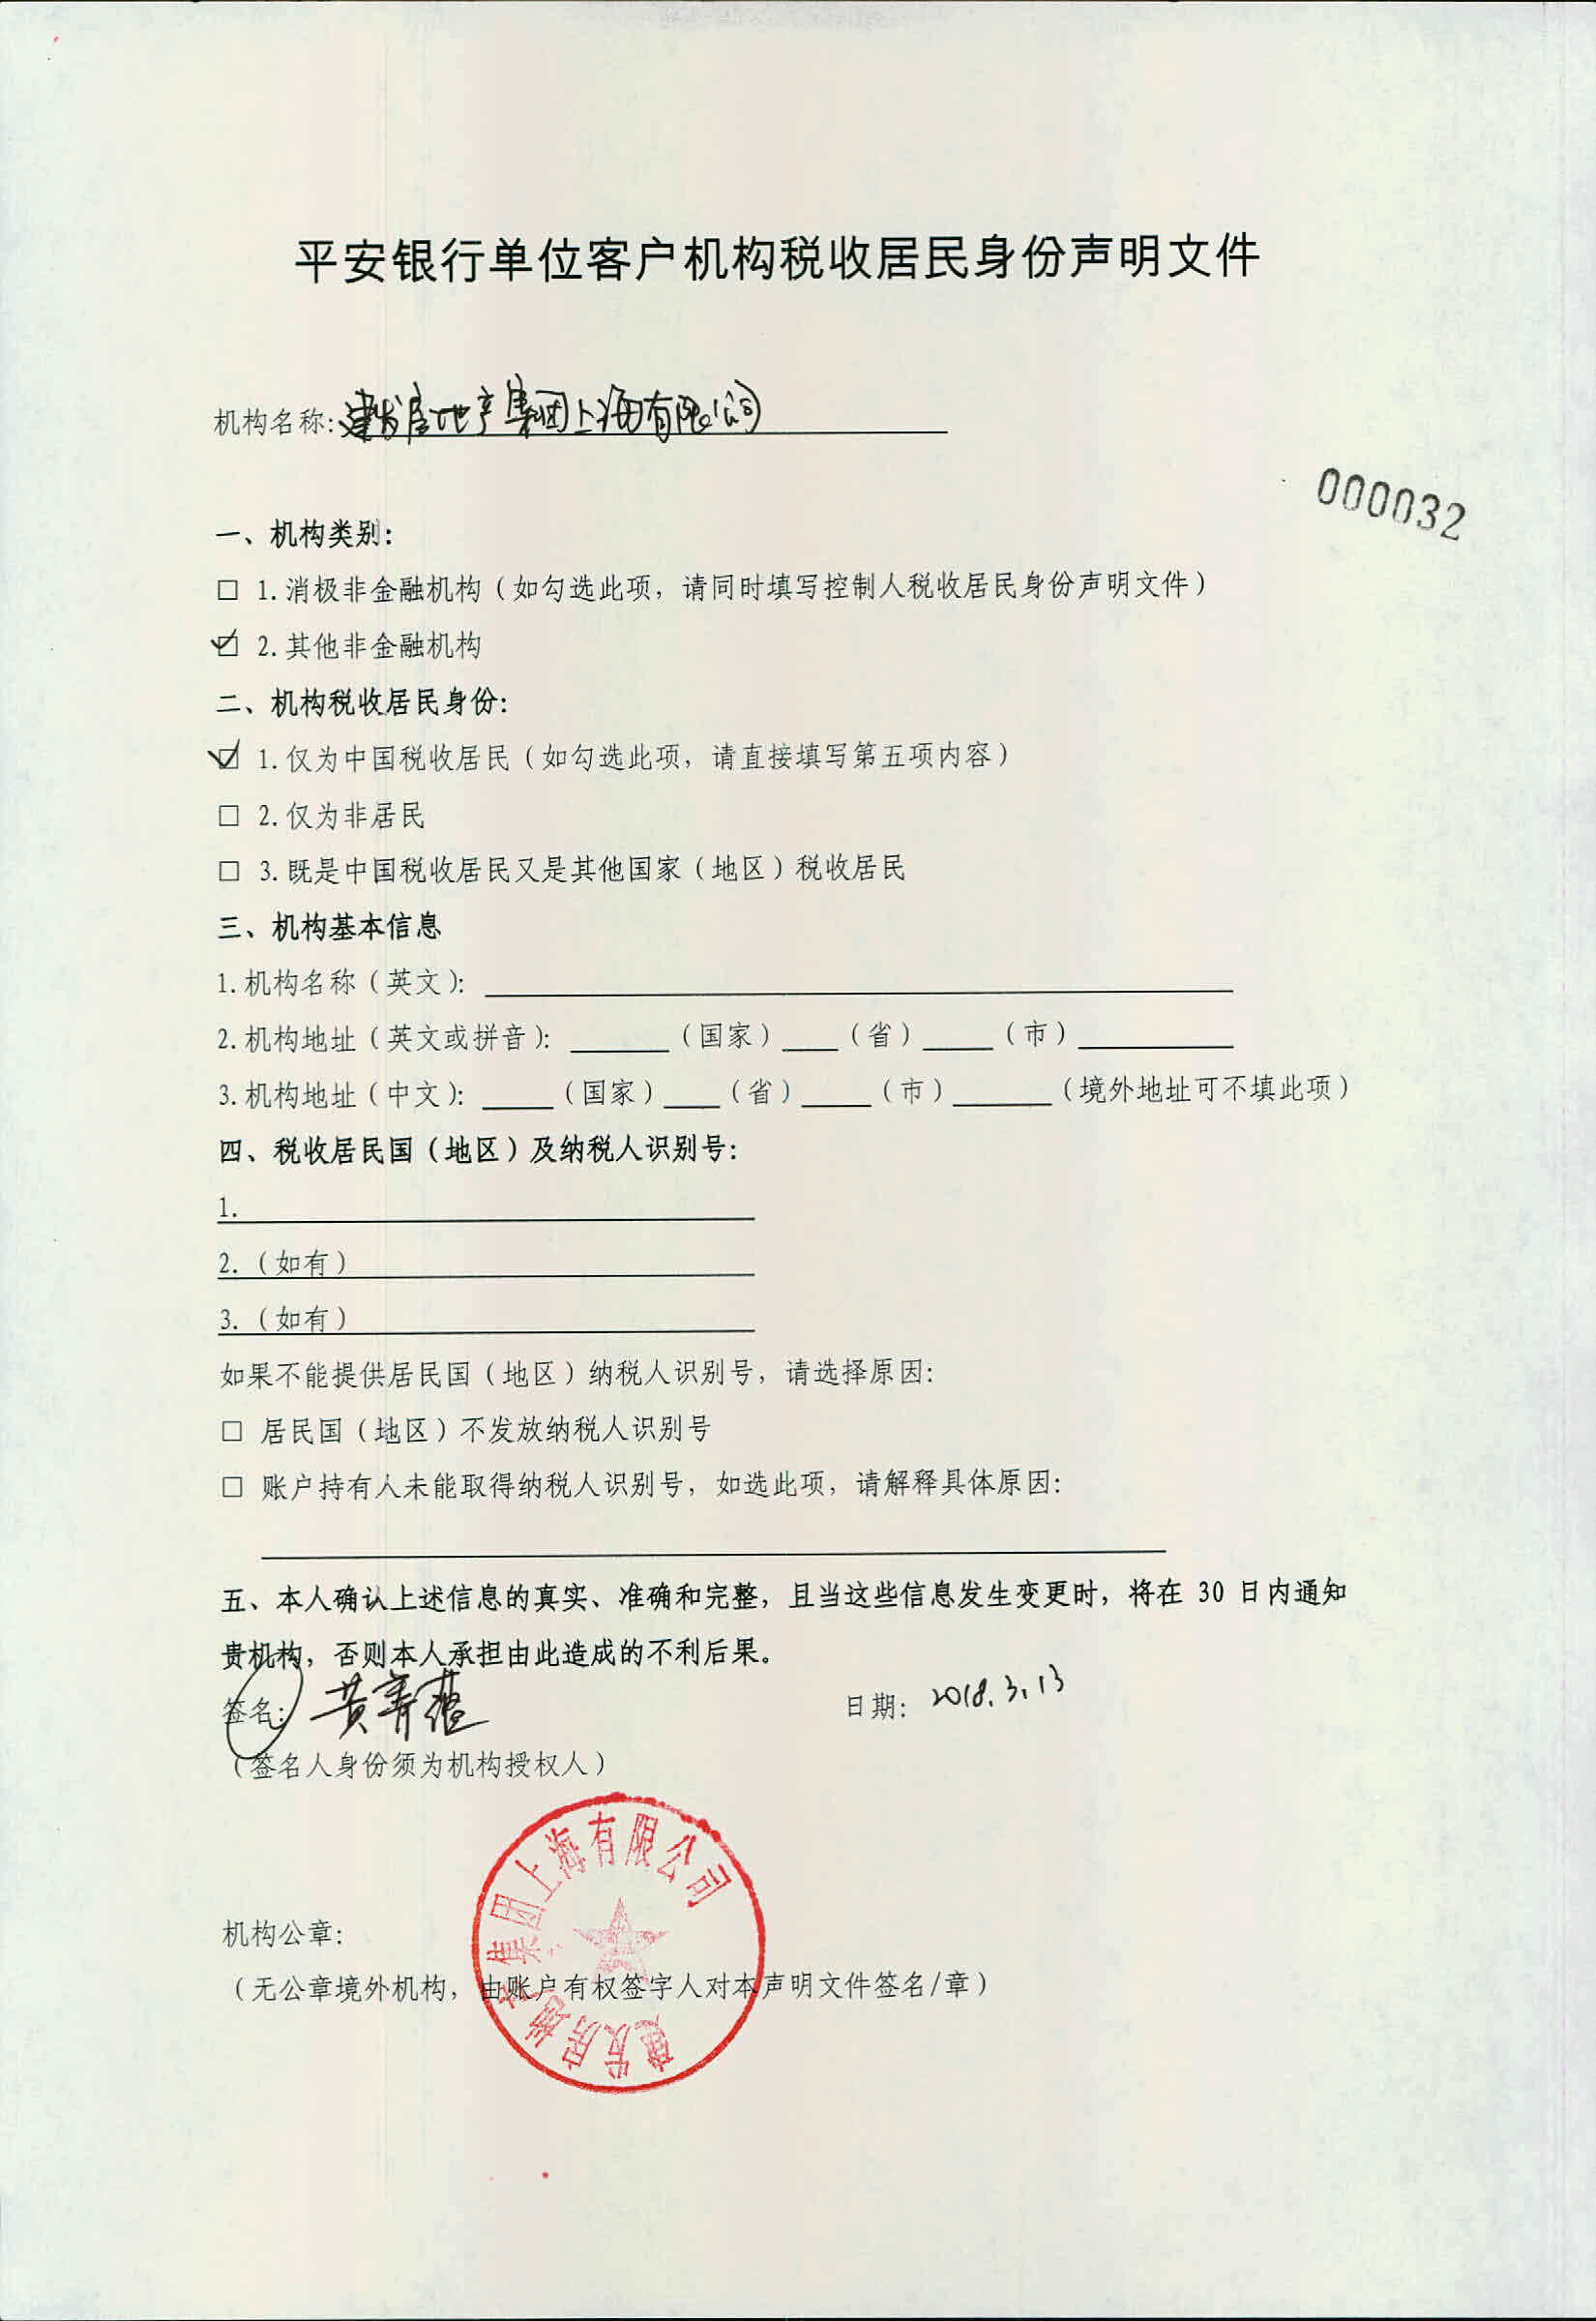 平安银行单位客户机构税收居民身份声明文件
机构名称:建发房地产集团上海有限公司
000032
一、机构类别:
□ 1.消极非金融机构（如勾选此项，请同时填写控制人税收居民身份声明文件）
☑ 2.其他非金融机构
二、机构税收居民身份:
☑ 1.仅为中国税收居民（如勾选此项，请直接填写第五项内容）
□ 2.仅为非居民
□ 3.既是中国税收居民又是其他国家（地区）税收居民
三、机构基本信息
1.机构名称（英文）:
2.机构地址（英文或拼音）: （国家） （省） （市）
3.机构地址（中文）: （国家） （省） （市） （境外地址可不填此项）
四、税收居民国（地区）及纳税人识别号:
1.
2.（如有）
3.（如有）
如果不能提供居民国（地区）纳税人识别号，请选择原因:
□ 居民国（地区）不发放纳税人识别号
□ 账户持有人未能取得纳税人识别号，如选此项，请解释具体原因:
五、本人确认上述信息的真实、准确和完整，且当这些信息发生变更时，将在 30 日内通知
贵机构，否则本人承担由此造成的不利后果。
签名: 黄 日期: 2018.3.13
（签名人身份须为机构授权人）
建发房地产集团上海有限公司
机构公章:
（无公章境外机构，由账户有权签字人对本声明文件签名/章）